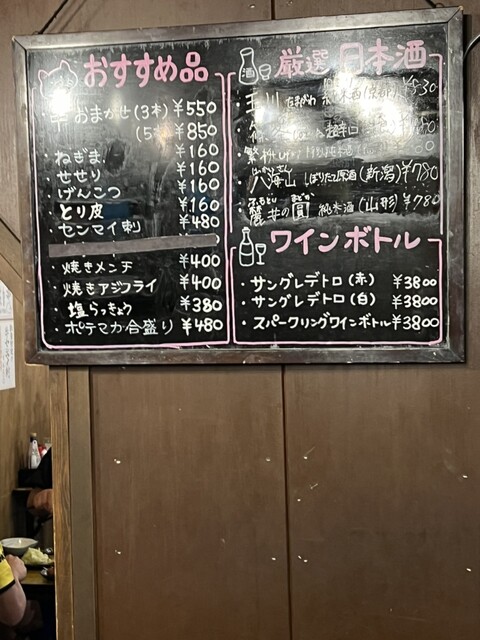 おすすめ品
串おまかせ(3本) ¥550
(5本) ¥850
・ねぎま ¥160
・せせり ¥160
・げんこつ ¥160
・とり皮 ¥160
・センマイ刺 ¥480
・焼きメンチ ¥400
・焼きアジフライ ¥400
・塩らっきょう ¥380
・ポテマカ合盛り ¥480
酒
厳選 日本酒
・玉川
超辛口
八海山 しぼりたて原酒(新潟) ¥780
・麓井の圓 純米酒(山形) ¥780
ワインボトル
・サングレデトロ(赤) ¥3800
・サングレデトロ(白) ¥3800
・スパークリングワインボトル ¥3800